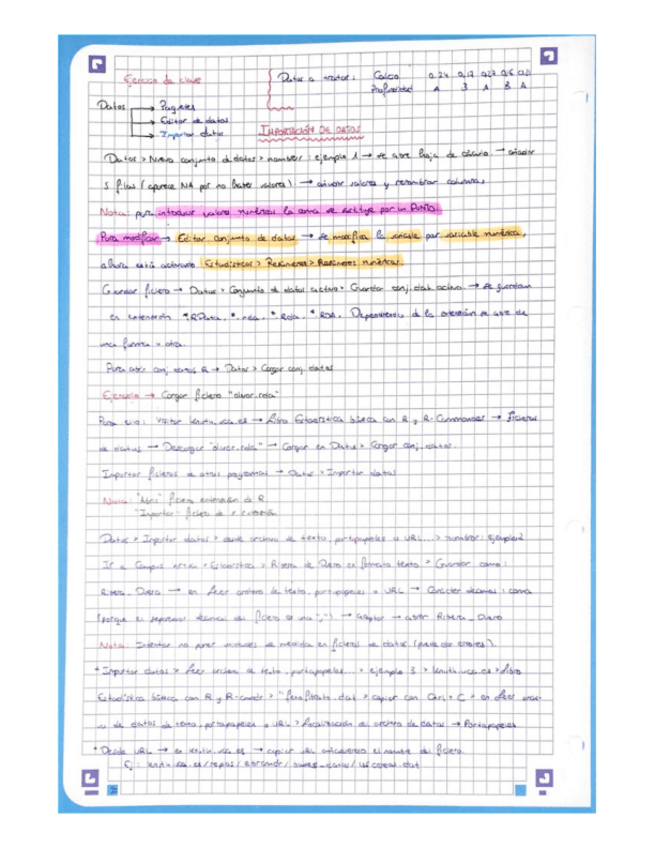 Ejercicio de clase
Datos a tratar: Calcio 0,24 0,17
Profundidad A B A B A
Datos → Paquetes
→ Editor de datos
→ Importar datos
IMPORTACIÓN DE DATOS
Datos > Nuevo conjunto de datos > nombrar: ejemplo 1 → se abre hoja de cálculo → añadir
5 filas (aparece NA por no haber valores) → añadir valores y renombrar columnas
Nota: para introducir valores numéricos la coma se sustituye por un PUNTO.
Para modificar → Editar conjunto de datos → se modifica la variable por variable numérica,
ahora está activado Estadísticos > Resúmenes > Resúmenes numéricos.
Guardar fichero → Datos > Conjunto de datos activo > Guardar conj. dat. activo → se guardan
en extensión *.RData, *.rda, *.Rda, *.RDA. Dependiendo de la extensión se abre de
una forma u otra.
Para abrir conj. datos R → Datos > Cargar conj. datos
Ejercicio → Cargar fichero "olivar.rda"
Para ello: visitar knuth.uca.es → Libro Estadística básica con R y R-Commander → ficheros
de datos → Descargar "olivar.rda" → Cargar en Datos > Cargar conj. datos.
Importar ficheros de otros programas → Datos > Importar datos
Nota: "Abrir" fichero extensión de R
"Importar" fichero de
Datos > Importar datos > desde archivo de texto, portapapeles o URL... > nombrar: ejemplo2
Ir a Campus > Estadística > Ribera de Duero en formato texto > Guardar como:
Ribera_Duero → en Leer archivo de texto, portapapeles o URL → Carácter decimal: coma
(porque el separador decimal del fichero es una ",") → Aceptar → abrir Ribera_Duero
Nota: Intentar no poner unidades de medida en ficheros de datos (puede dar errores).
* Importar datos > Leer archivo de texto, portapapeles... > ejemplo 3 > knuth.uca.es > Libro
Estadística básica con R y R-cmdr > .dat > copiar con Ctrl + C > en Leer archi-
vo de datos de texto, portapapeles o URL > Localización del archivo de datos → Portapapeles
* Desde URL → en knuth.uca.es → copiar URL el nombre del fichero.
Ej: knuth.uca.es/repos/ebrcmdr/